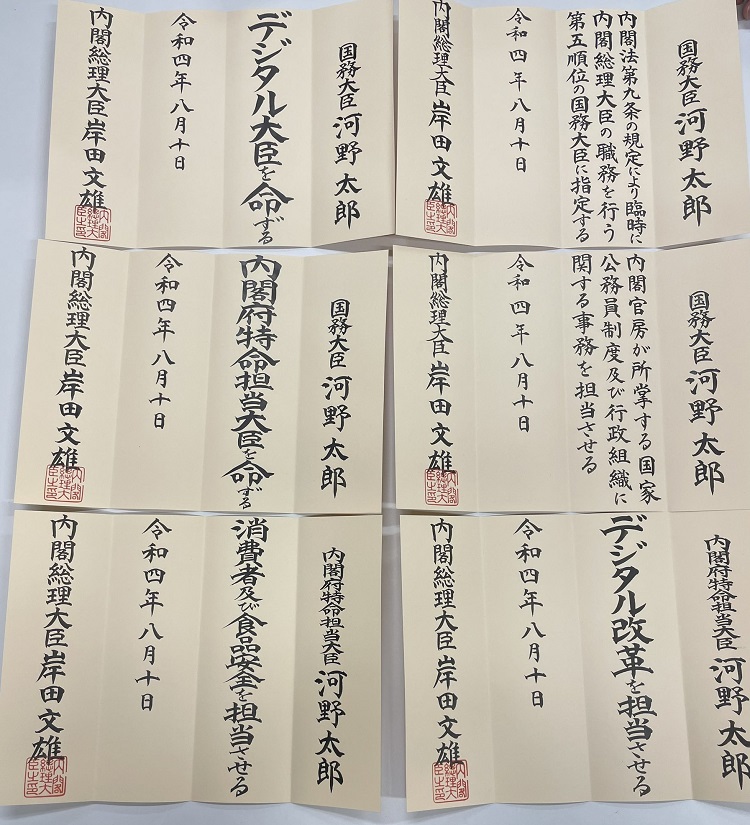 国務大臣 河野太郎
内閣法第九条の規定により臨時に
内閣総理大臣の職務を行う
第五順位の国務大臣に指定する
令和四年八月十日
内閣総理大臣 岸田文雄
内閣総理大臣之印
デジタル大臣を命ずる
令和四年八月十日
内閣総理大臣 岸田文雄
内閣総理大臣之印
国務大臣 河野太郎
内閣官房が所掌する国家
公務員制度及び行政組織に
関する事務を担当させる
令和四年八月十日
内閣総理大臣 岸田文雄
内閣総理大臣之印
国務大臣 河野太郎
内閣府特命担当大臣を命ずる
令和四年八月十日
内閣総理大臣 岸田文雄
内閣総理大臣之印
内閣府特命担当大臣 河野太郎
デジタル改革を担当させる
令和四年八月十日
内閣総理大臣 岸田文雄
内閣総理大臣之印
内閣府特命担当大臣 河野太郎
消費者及び食品安全を担当させる
令和四年八月十日
内閣総理大臣 岸田文雄
内閣総理大臣之印